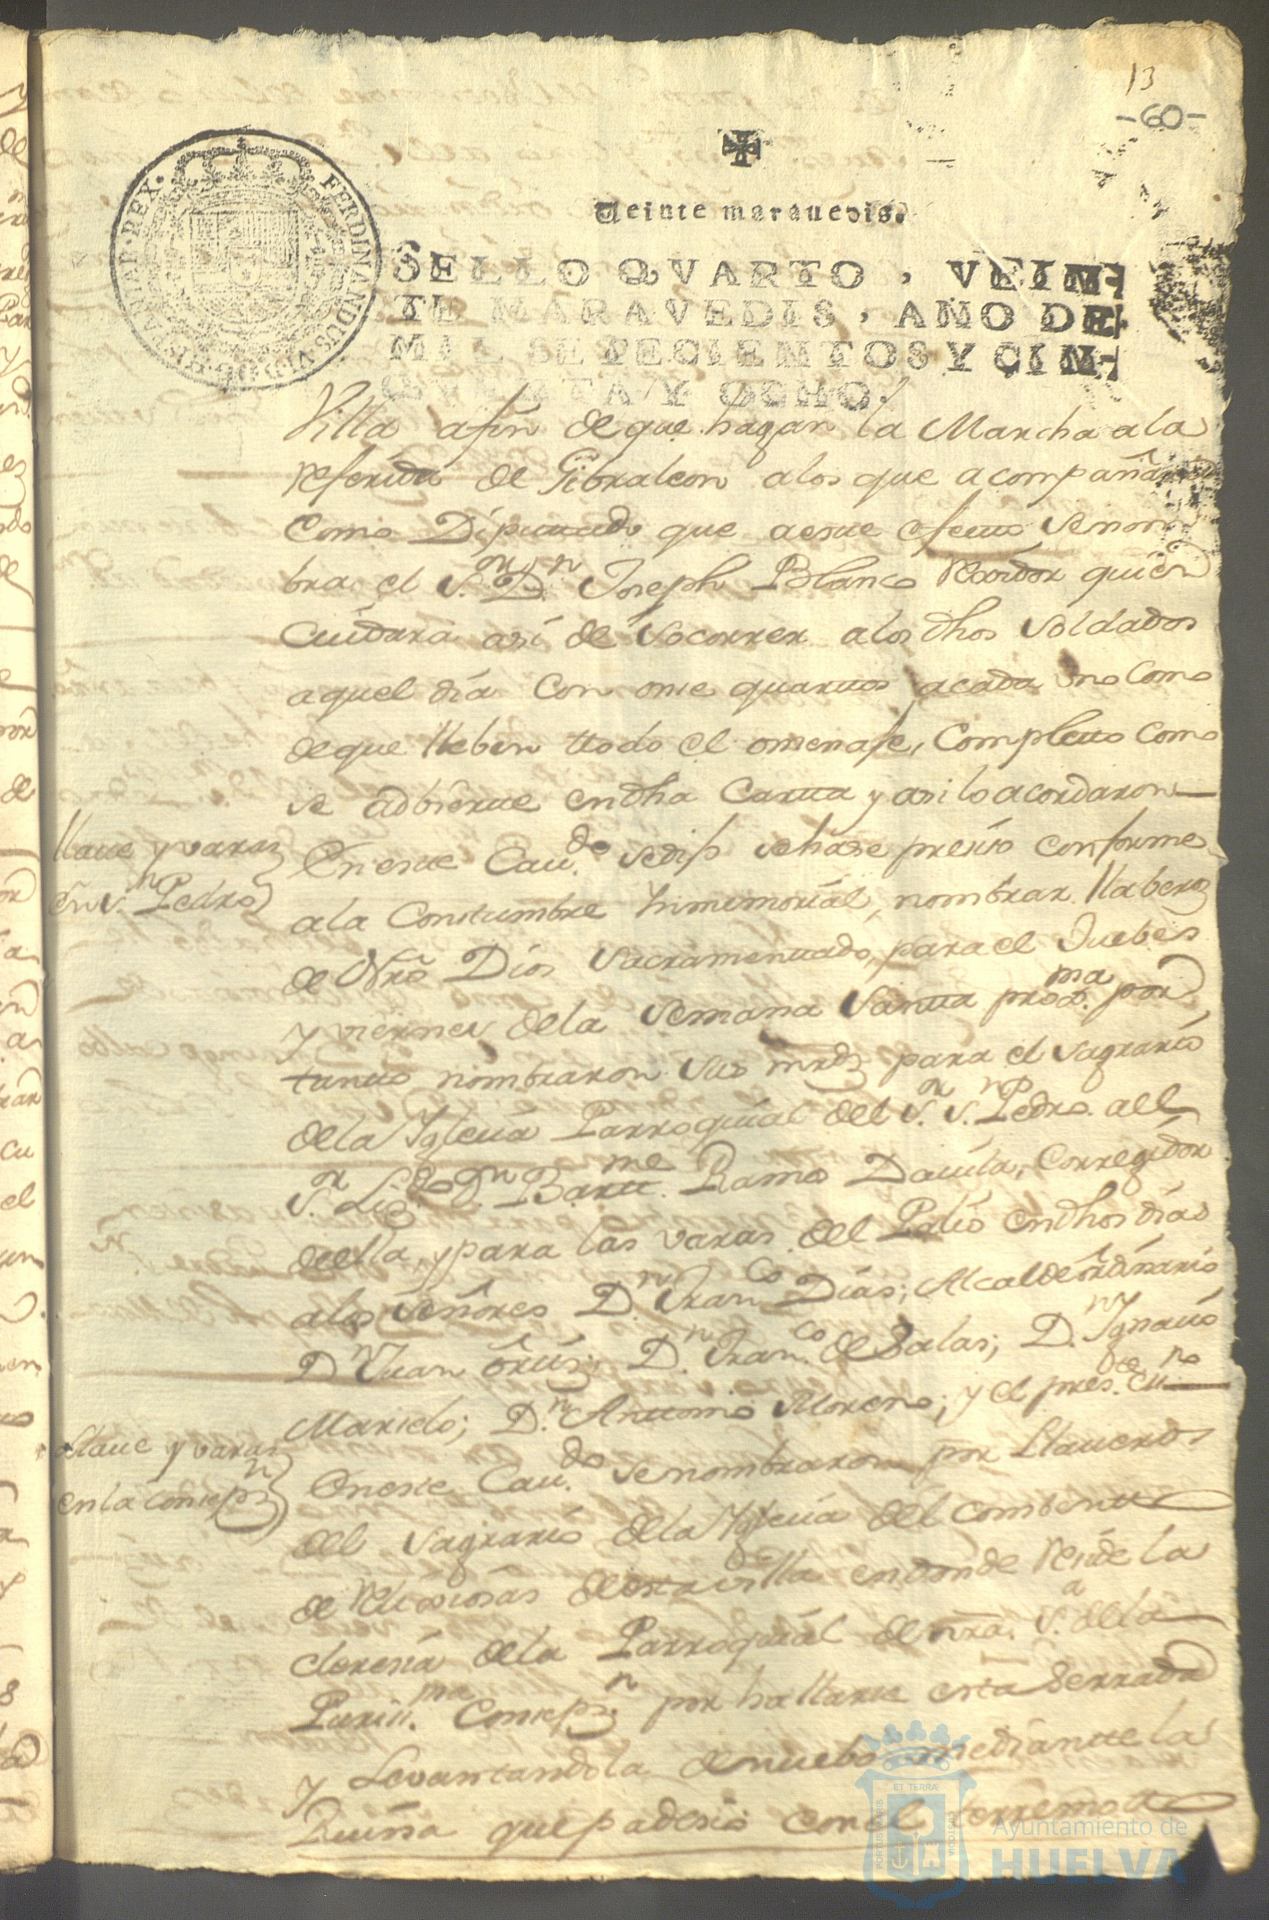 13
-60-
HISPANIAR·REX· FERDINANDUS·VI·D·G·
Veinte maravedis.
SELLO QVARTO, VEIN-
TE MARAVEDIS, AÑO DE
MIL SETECIENTOS Y CIN-
QVENTA Y OCHO.
Villa afin de que hagan la Marcha a la
referida de Gibraleon a los que acompañara
Como Diputado que aeste efecto se nom
bra el S.r D.n Joseph Blanco Rexidor quien
Cuidara asi de socorrer a los dhos soldados
aquel dia con onse quartos a cada uno como
de que lleben ttodo el omenaje, Completto como
se adbierte en dha Cartta y asi lo acordaron
llave y varas
en S.n Pedro
En este Cav.do se dijo se hase presiso conforme
a la Constumbre Ynmemorial, nombrar llaberos
de Ntro Dios Sacramentado, para el Juebes
y viernes de la semana Santta prox.ma por
tanto nombraron sus mrds para el sagrario
de la Yglesia Parroquial del S.r S.n Pedro al
S.r Liz.do D.n Bartt.me Ramos Davila, Corregidor
de ella, y para las varas del Palio en dhos dias
a los señores D.n Fran.co Dias, Alcalde ordinario
D.n Juan Ortiz; D.n Fran.co de Salas; D.n Ygnacio
D.n Anttonio Moreno; y el pres.te es.no
Llave y varas
en la Consep.n
En este Cav.do se nombraron por Llaveros
del sagrario de la Yglesia del combento
de Relixiosas de esta villa en donde Reside la
cleresia de la Parroquial de nra. S.a de la
Puriss.ma Consep.n por hallarse esta Serrada
y Levantandola de nuebo mediante la
Ruina que padesio con el terremoto
ET TERRÆ
Ayuntamiento de
HUELVA